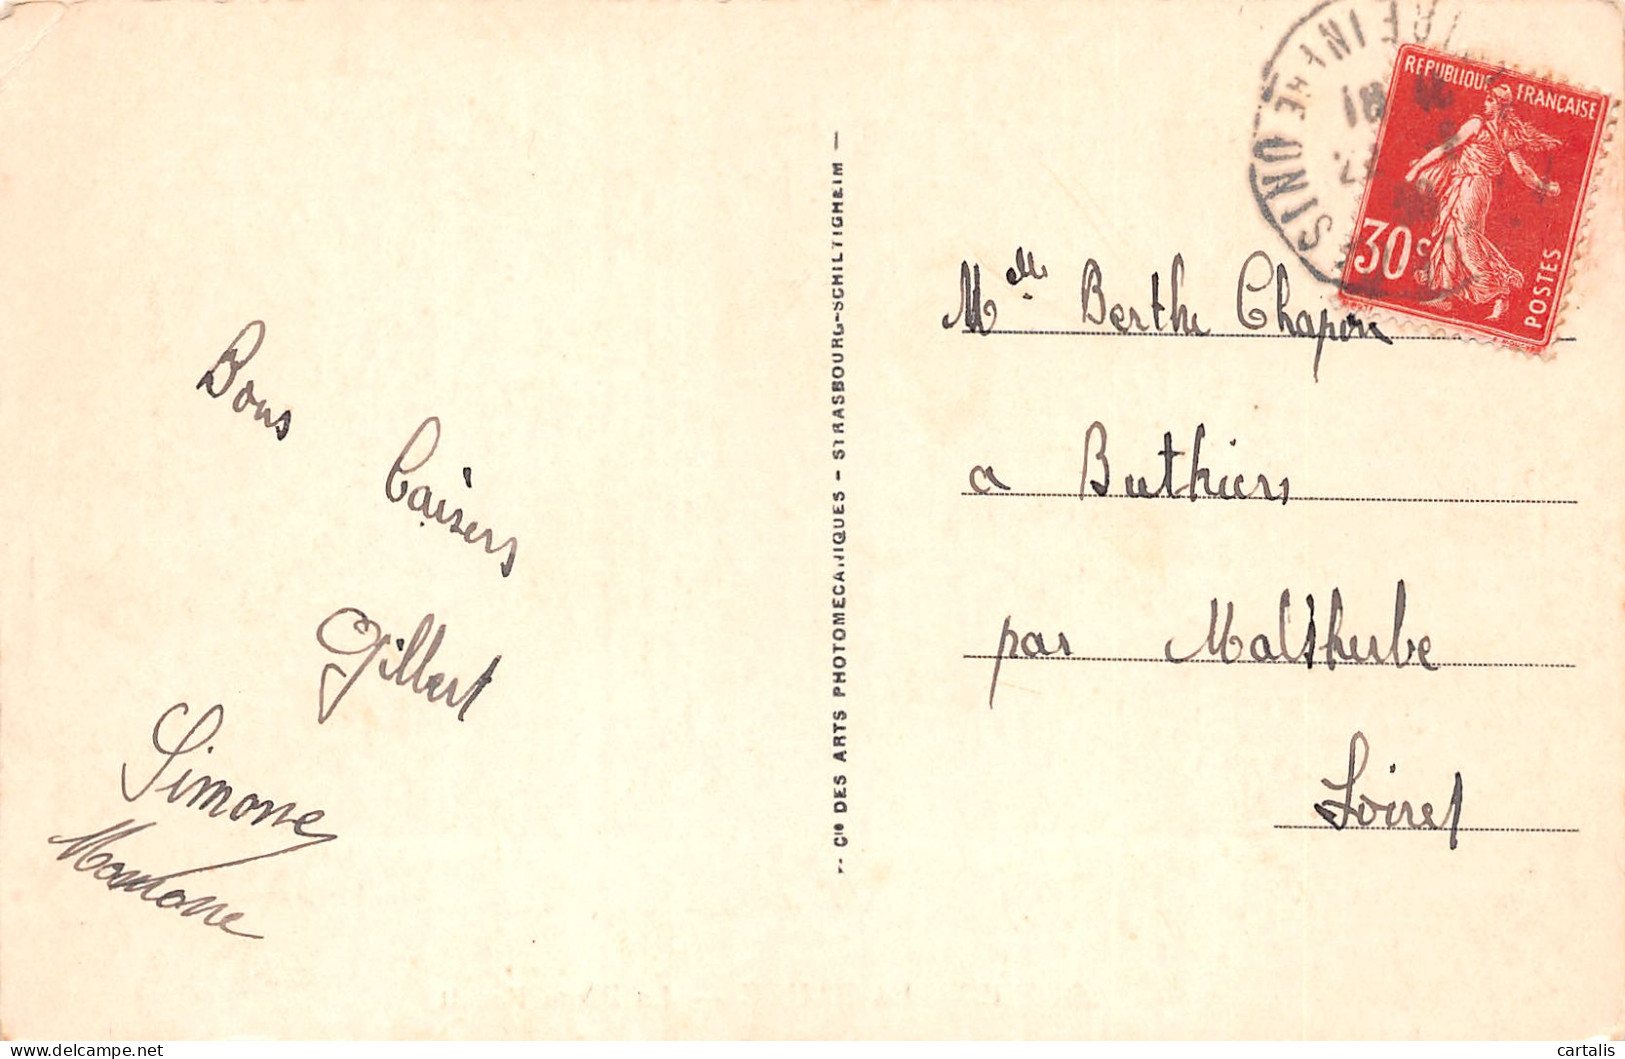 Bons
baisers
Gilbert
Simone
Cie DES ARTS PHOTOMECANIQUES - STRASBOURG-SCHILTIGHEIM -
REPUBLIQUE FRANÇAISE
30c
POSTES
18
Melle Berthe Chapon
a Buthiers
par Malsherbe
Loiret
cartalis